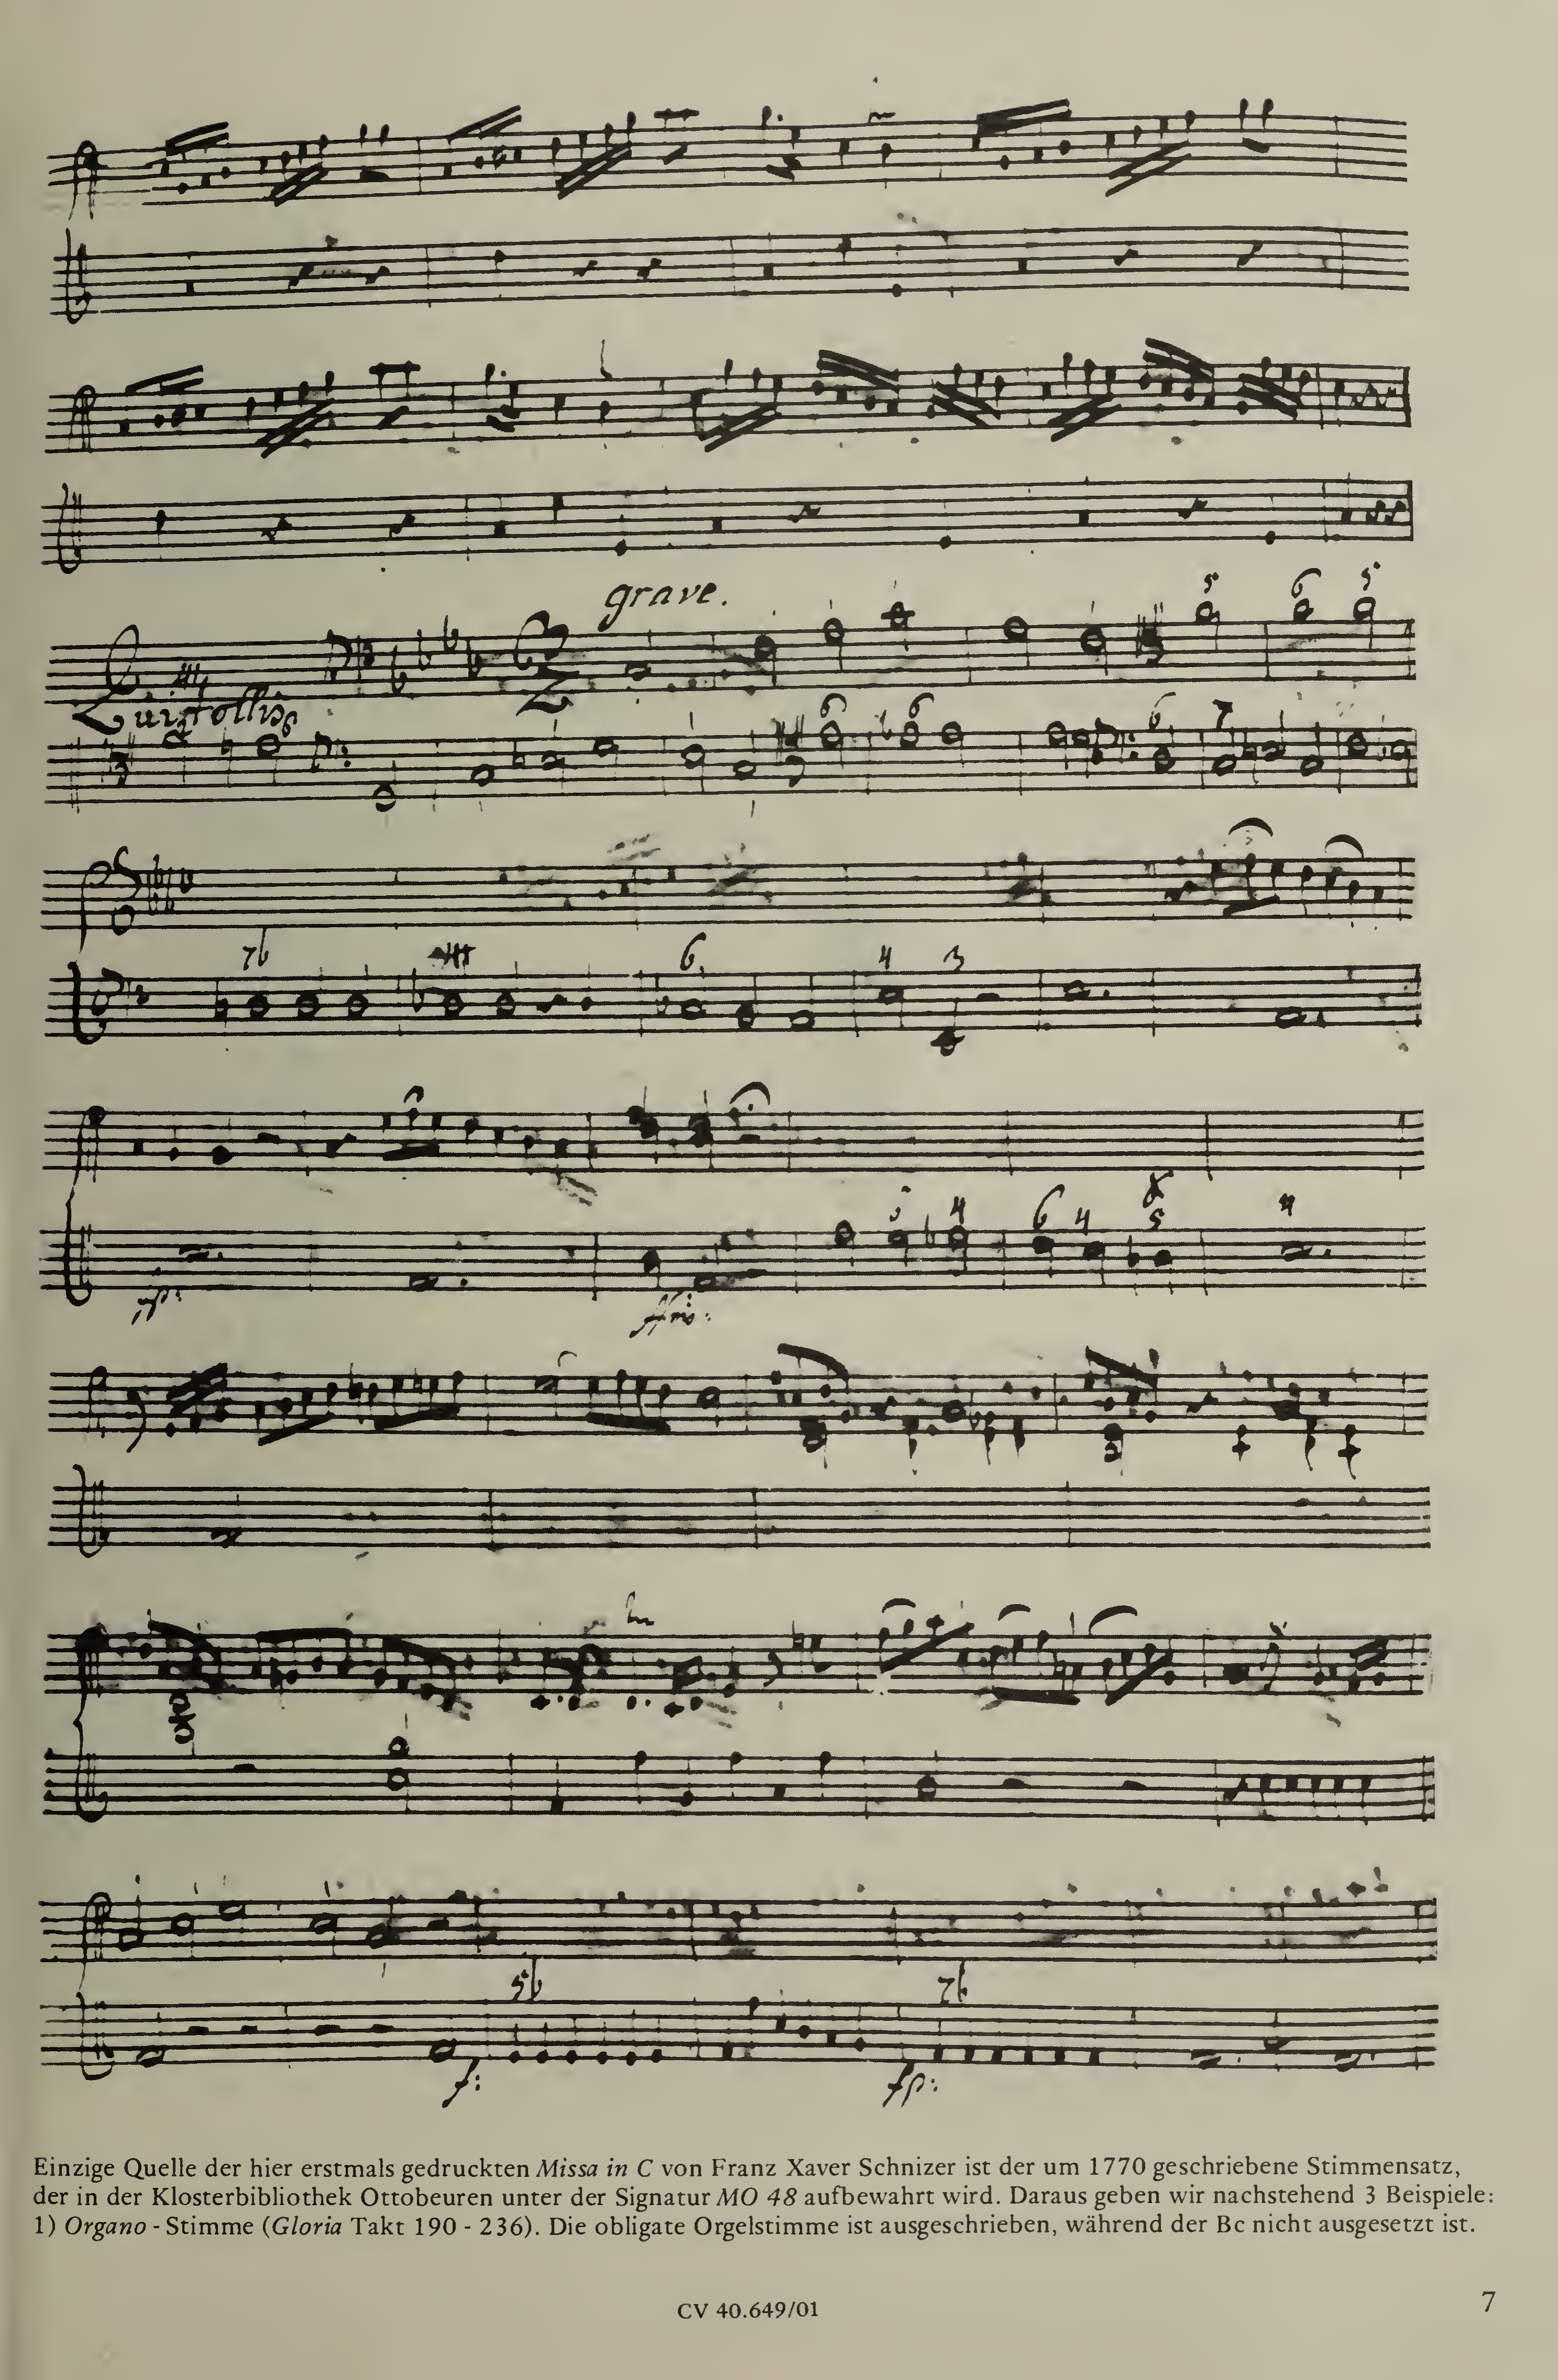 grave.
5 6 5
Qui tollis
6
6 6 6 7
7b 6 4 3
5 4 6 4 8
5 4
p:
ffmo:
5b 7b
f: fp:
Einzige Quelle der hier erstmals gedruckten Missa in C von Franz Xaver Schnizer ist der um 1770 geschriebene Stimmensatz,
der in der Klosterbibliothek Ottobeuren unter der Signatur MO 48 aufbewahrt wird. Daraus geben wir nachstehend 3 Beispiele:
1) Organo - Stimme (Gloria Takt 190 - 236). Die obligate Orgelstimme ist ausgeschrieben, während der Bc nicht ausgesetzt ist.
CV 40.649/01
7